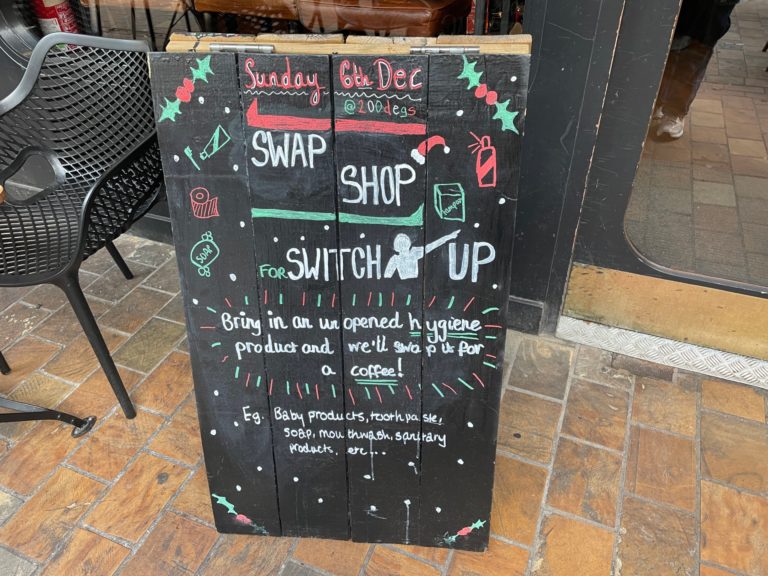 Sunday 6th Dec
@200degs
SWAP
SHOP
FOR SWITCH UP
Bring in an unopened hygiene
product and we'll swap it for
a coffee!
Eg. Baby products, toothpaste,
soap, mouthwash, sanitary
products, etc...
SOAP